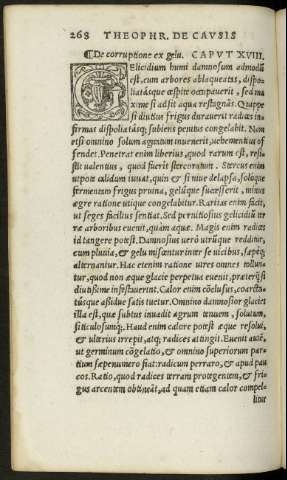 268 THEOPHR. DE CAVSIS
¶ De corruptione ex gelu. CAPVT XVIII.
GElicidium humi damnosum admodũ
est, cum arbores ablaqueatas, dispo-
liatásque cæspite occupauerit, sed ma
xime si adsit aqua restagnãs. Quippe
si diutius frigus durauerit radices in-
firmat dispoliatásq; subiens penitus congelabit. Nam
etsi omnino solum agentem inuenerit, uehementius of
fendet. Penetrat enim liberius, quod rarum est, resu-
flit ualentius, quod fuerit stercoratum. Stercus enim
utpote calidum iuuat, quin & si niue delapsa, soloque
fermentem frigus pruina, gelúque successerit, minus
ægre ratione utique congelabitur. Raritas enim facit,
ut seges facilius sentiat. Sed perniciosius gelicidiũ ter
ræ arboribus euenit, quàm aquæ. Magis enim radices
id tangere potest. Damnosius uerò utrũque redditur,
cum pluuia, & gelu miscentur inter se uicibus, sæpéq;
alternantur. Hac etenim ratione uires omnes
tur, quod non æque glacie perpetua euenit, præterq̃ si
diutissime insederit. Calor enim cœlestis, coarcta-
túsque assidue satis tuetur. Omnino damnosior glacies
illa est, quæ subtus inuadit agrum tenuem, solutum,
siticulosumq;. Haud enim calore potest æque resolui,
& ulterius irrepit, atq; radices attingit. Euenit autẽ,
ut germinum cõgelatio, & omnino superiorum par-
tium sæpenumero fiat: radicum perraro, & apud pau
cos. Ratio, quod radices terram protegentem, & fri-
gus arcentem obtineãt, ad quam etiam calor compel-
litur